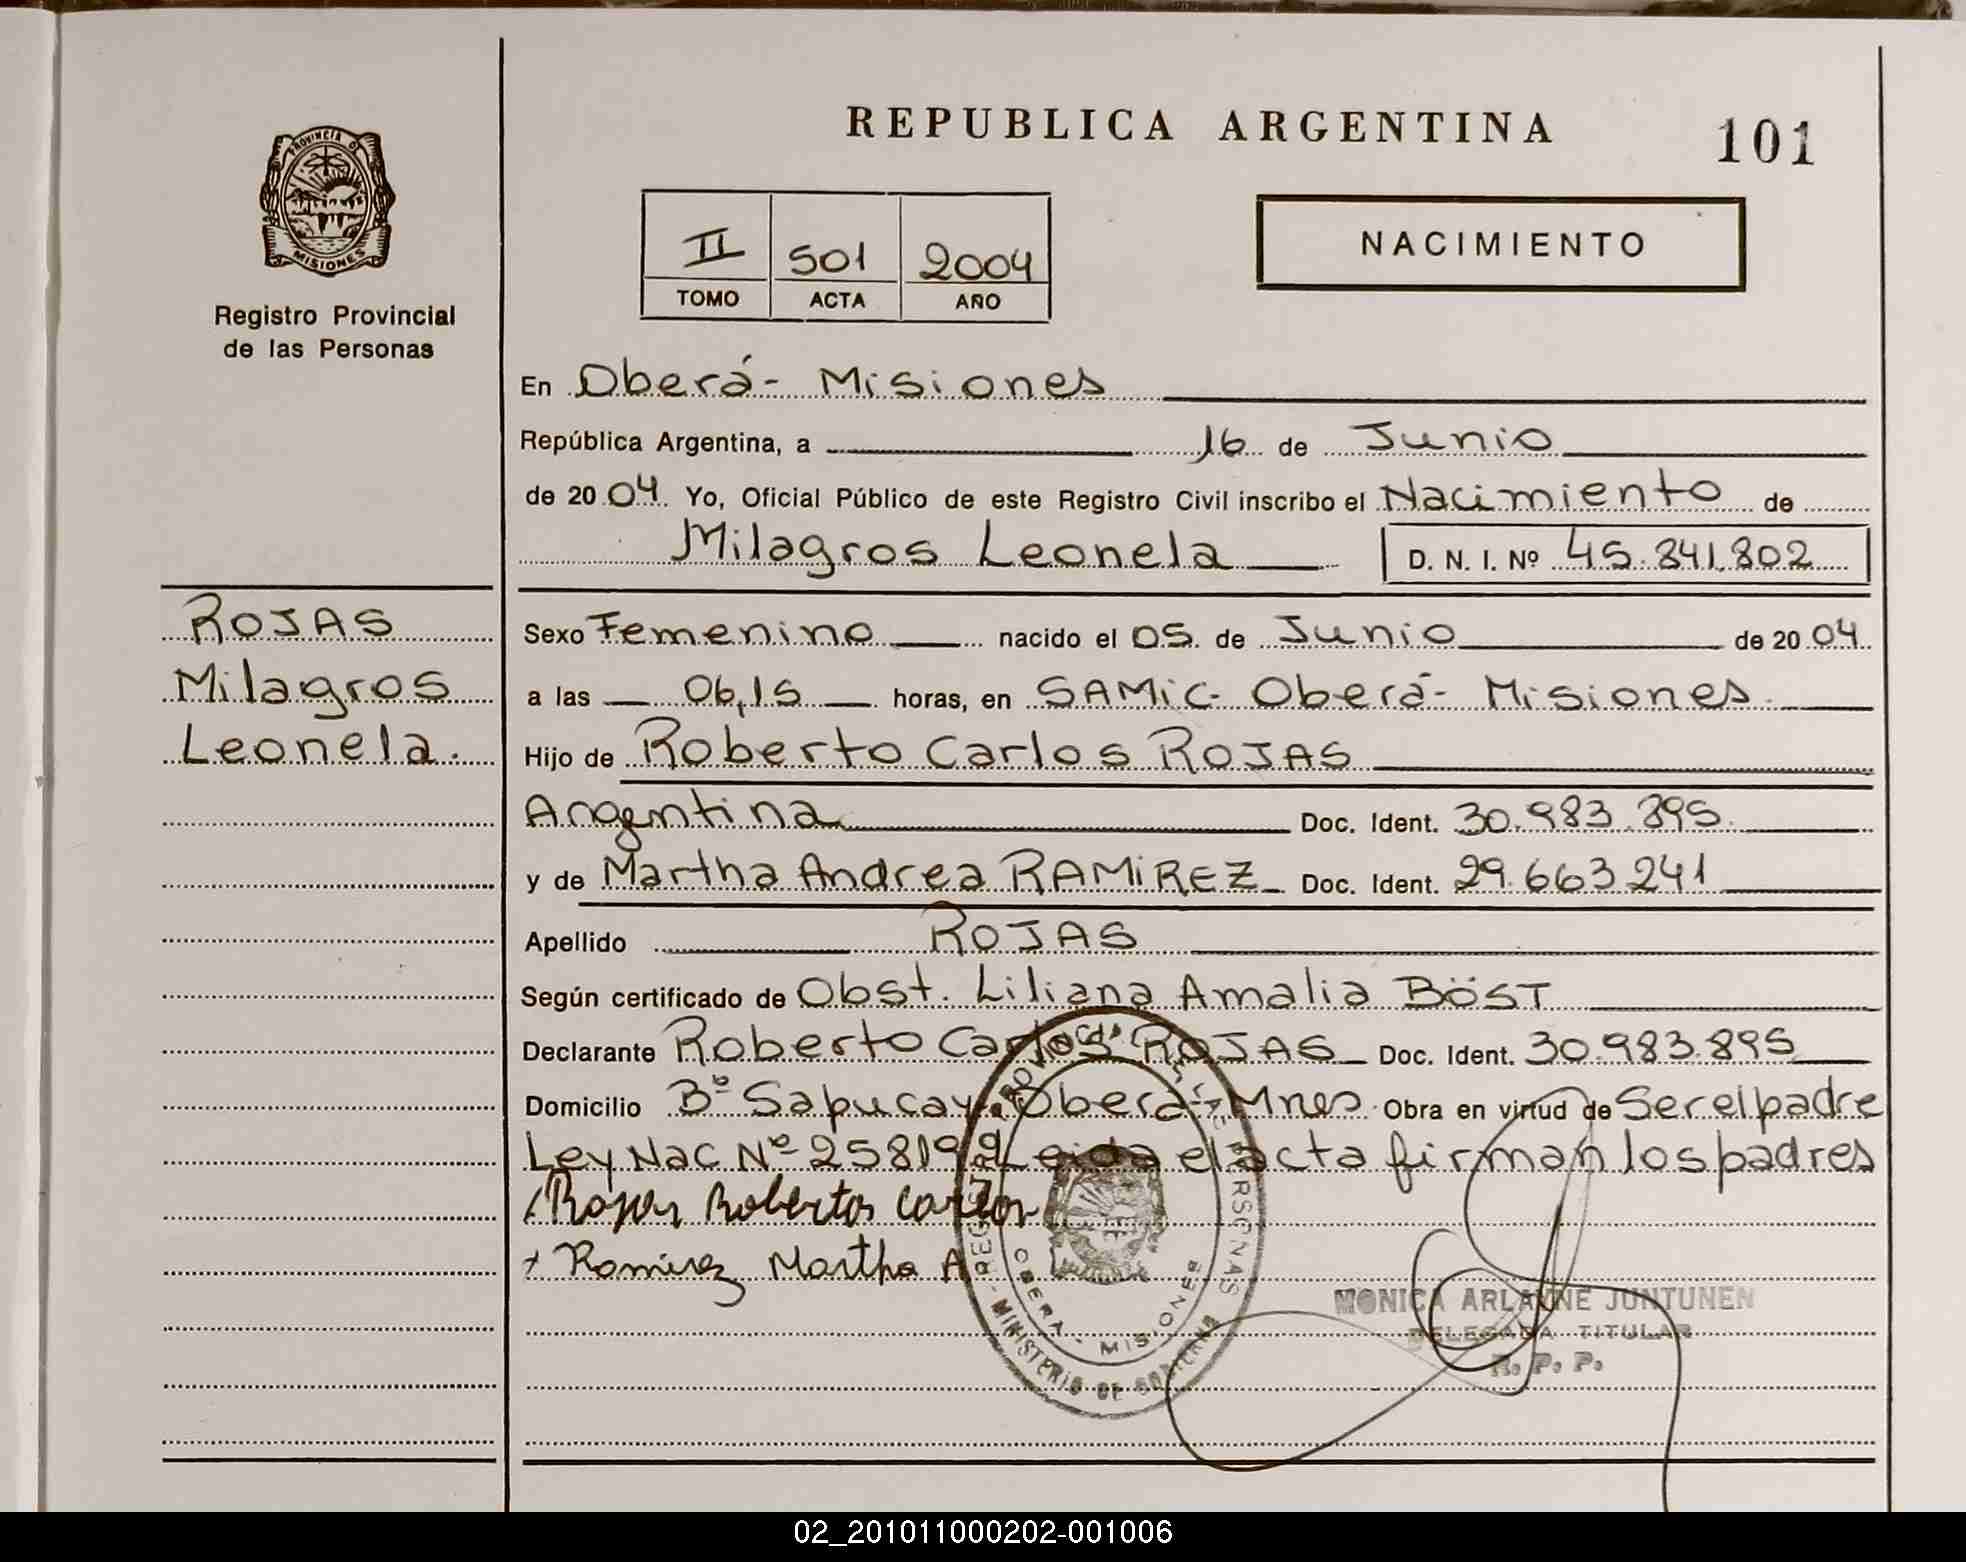 REPUBLICA ARGENTINA
101
PROVINCIA DE
MISIONES
Registro Provincial
de las Personas
II 501 2004
TOMO ACTA AÑO
NACIMIENTO
En Oberá- Misiones
República Argentina, a 16 de Junio
de 2004 Yo, Oficial Público de este Registro Civil inscribo el Nacimiento de
Milagros Leonela D. N. I. Nº 45.841.802
ROJAS
Milagros
Leonela.
Sexo Femenino nacido el 05 de Junio de 2004
a las 06,15 horas, en SAMiC- Oberá- Misiones.
Hijo de Roberto Carlos ROJAS
Argentina Doc. Ident. 30.983.895.
y de Martha Andrea RAMiREZ Doc. Ident. 29.663.241
Apellido ROJAS
Según certificado de Obst. Liliana Amalia BÖST
Declarante Roberto Carlos ROJAS Doc. Ident. 30.983.895
Domicilio Bº Sapucay. Oberá- Mnes Obra en virtud de Ser el padre
Ley Nac Nº 25819 Leida el acta firman los padres
Rojas Roberto Carlos
Ramirez Martha A
OBERA - MISIONES
MINISTERIO DE GOBIERNO
MONICA ARLANNE JUNTUNEN
DELEGADA TITULAR
R. P. P.
02_201011000202-001006